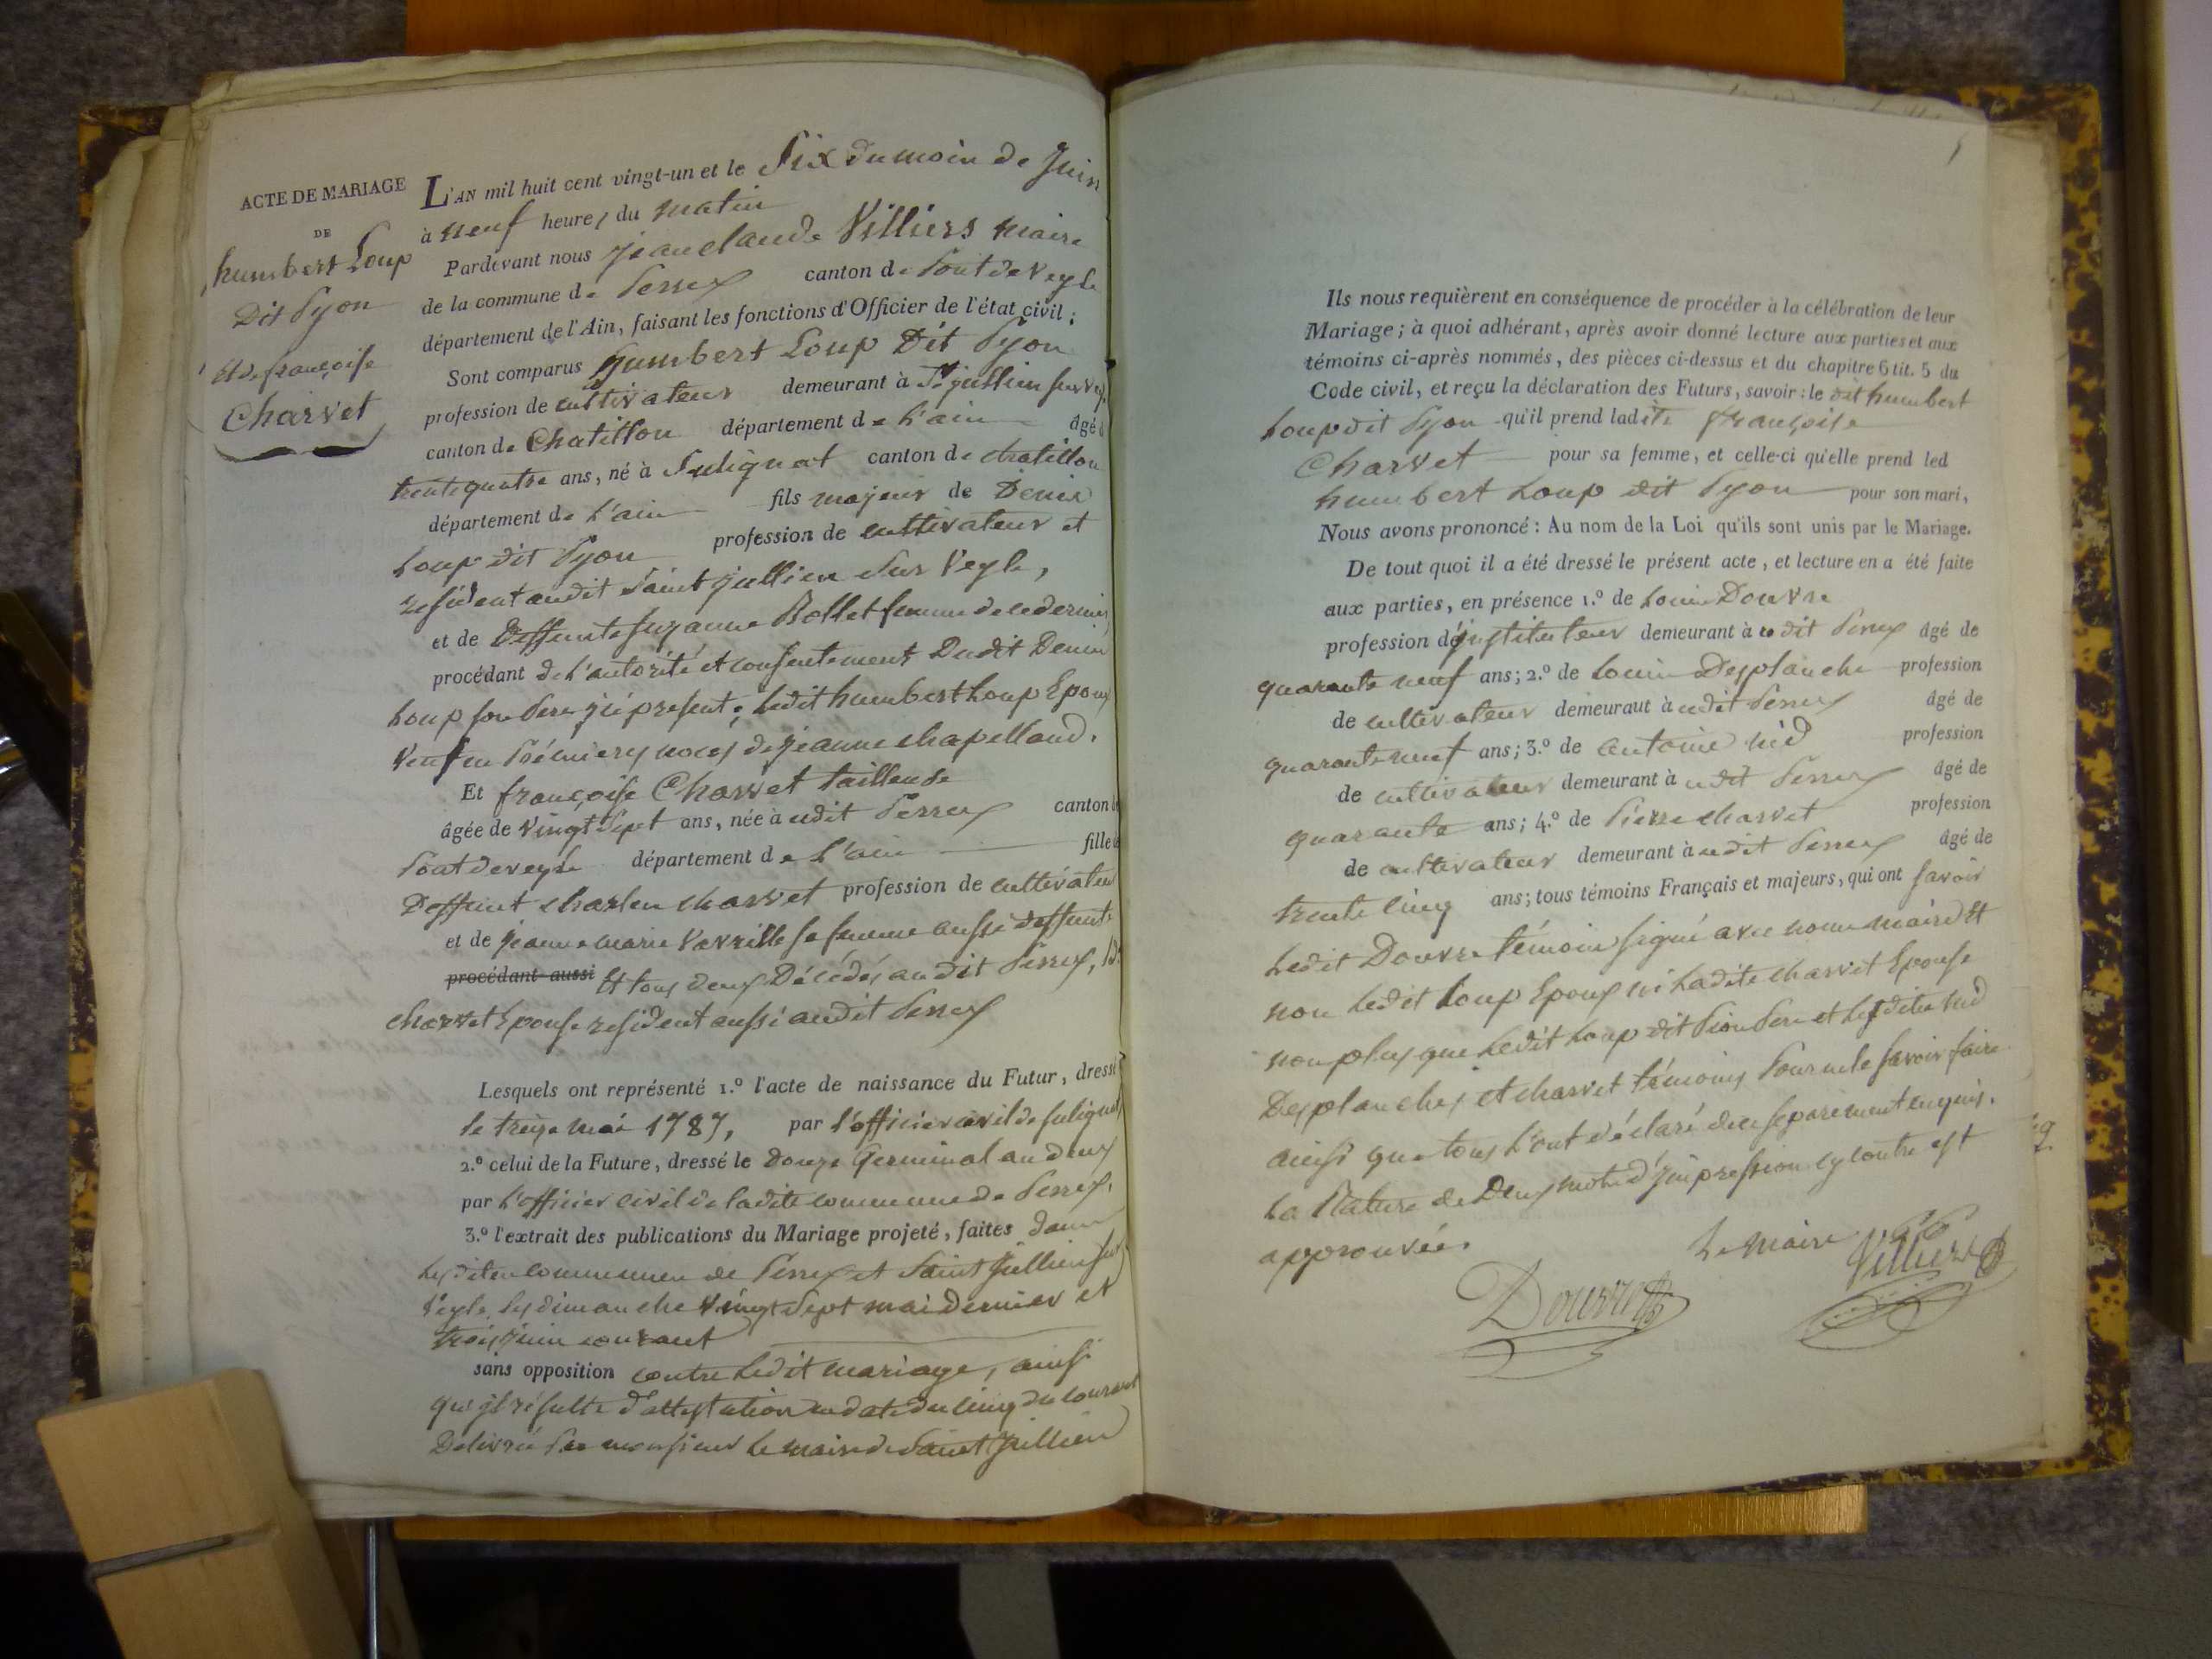 ACTE DE MARIAGE
DE
humbert Loup
Dit Pyon
et de françoise
Charvet
L'AN mil huit cent vingt-un et le Six du mois de Juin
à neuf heures du matin
Pardevant nous jeanclaude Villiers maire
de la commune de Perrex canton de Pont de Veyle
département de l'Ain, faisant les fonctions d'Officier de l'état civil;
Sont comparus humbert Loup Dit Pyon
profession de cultivateur demeurant à St jullien sur vey
canton de Chatillon département de L'ain âgé d
trente quatre ans, né à Sulignat canton de chatillon
département de L'ain fils majeur de Denis
Loup dit Pyon profession de cultivateur et
résident audit Saint jullien Sur Veyle,
et de Deffunte suzanne Bollet femme de ce dernier
procédant de L'autorité et consentement Dudit Denis
Loup son Pere ici présent; Ledit humbert Loup Epoux
Veuf en Prémiers noces de jeanne chapelland.
Et françoise Charvet tailleuse
âgée de vingt Sept ans, née à udit Perrex canton de
Pont de veyle département de L'ain fille de
Deffunt charles charvet profession de cultivateur
et de jeanne marie Vavrille sa femme aussi deffunte
procédant aussi Et tous deux Décédés audit Perrex, lde
charvet Epouse resident aussi audit Perrex
Lesquels ont représenté 1.º l'acte de naissance du Futur, dressé
le treize mai 1787, par l'officier civil de sulignat
2.º celui de la Future, dressé le douze Germinal an deux
par L'officier civil de ladite commune de Perrex.
3.º l'extrait des publications du Mariage projeté, faites dans
Lesdites communes de Perrex et Saint Jullien sur
Veyle les dimanche vingt Sept mai dernier et
trois juin courant
sans opposition contre Ledit mariage, ainsi
qu'il résulte d'attestation en date du cinq du courant
Delivrée Par monsieur le maire de Saint Jullien
Ils nous requièrent en conséquence de procéder à la célébration de leur
Mariage; à quoi adhérant, après avoir donné lecture aux parties et aux
témoins ci-après nommés, des pièces ci-dessus et du chapitre 6 tit. 5 du
Code civil, et reçu la déclaration des Futurs, savoir: le dit humbert
Loup dit Pyon qu'il prend ladite françoise
Charvet pour sa femme, et celle-ci qu'elle prend led
humbert Loup dit Pyon pour son mari,
Nous avons prononcé: Au nom de la Loi qu'ils sont unis par le Mariage.
De tout quoi il a été dressé le présent acte, et lecture en a été faite
aux parties, en présence 1.º de Louis Douvre
profession d'jnstituteur demeurant à udit Perrex âgé de
quarante neuf ans; 2.º de Louis Desplanche profession
de cultivateur demeurant à udit Perrex âgé de
quarante neuf ans; 3.º de antoine nid profession
de cultivateur demeurant à udit Perrex âgé de
quarante ans; 4.º de Pierre charvet profession
de cultivateur demeurant à udit Perrex âgé de
trente cinq ans; tous témoins Français et majeurs, qui ont savoir
Ledit Douvre témoin signé avec nous maire Et
non Ledit Loup Epoux ni Ladite charvet Epouse
non plus que Ledit Loup dit Pion Pere et Lesdits nid
Desplanches et charvet témoins Pour ne le savoir faire
ainsi que tous L'ont déclaré de ce séparément enquis.
La Rature de Deux mots d'jmpression cy contre est
approuvée.
Le maire
Villiers
Douvre